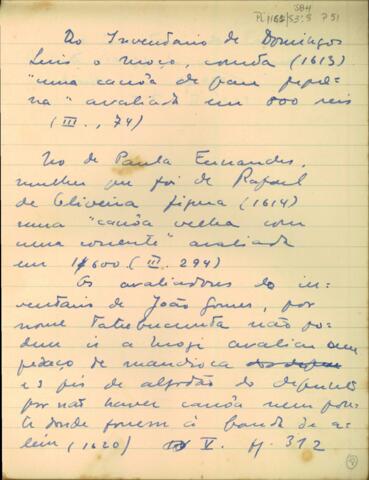 SBH
Pi 162 P51
No Inventario de Domingos
Luis o moço, consta (1613)
"uma canôa de pau peque-
na" avaliada em 800 reis
(III., 74)
No de Paula Fernandes,
mulher que foi de Rafael
de Oliveira figura (1614)
uma "canôa velha com
uma corrente" avaliada
em 1$600 (III. 294)
Os avaliadores do in-
ventario de João Gomes, por
nome Tatebucunta não po-
dem ir a Mogi avaliar um
pedaço de mandioca
e 3 pés de algodão do defunto
por não haver canôa nem pon-
te donde fossem á banda de a-
lem (1620) V. p. 312